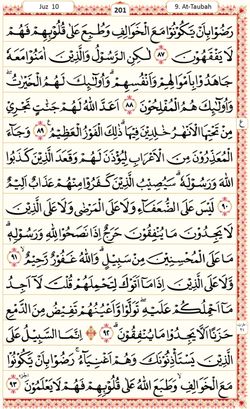 Juz 10
201
9. At-Taubah
رَضُوْا بِاَنْ يَّكُوْنُوْا مَعَ الْخَوَالِفِ وَطُبِعَ عَلٰى قُلُوْبِهِمْ فَهُمْ
لَا يَفْقَهُوْنَ ﴿٨٧﴾ لٰكِنِ الرَّسُوْلُ وَالَّذِيْنَ اٰمَنُوْا مَعَهٗ
جَاهَدُوْا بِاَمْوَالِهِمْ وَاَنْفُسِهِمْ وَاُولٰٓئِكَ لَهُمُ الْخَيْرٰتُ
وَاُولٰٓئِكَ هُمُ الْمُفْلِحُوْنَ ﴿٨٨﴾ اَعَدَّ اللّٰهُ لَهُمْ جَنّٰتٍ تَجْرِيْ
مِنْ تَحْتِهَا الْاَنْهٰرُ خٰلِدِيْنَ فِيْهَا ذٰلِكَ الْفَوْزُ الْعَظِيْمُ ﴿٨٩﴾ وَجَآءَ
الْمُعَذِّرُوْنَ مِنَ الْاَعْرَابِ لِيُؤْذَنَ لَهُمْ وَقَعَدَ الَّذِيْنَ كَذَبُوا
اللّٰهَ وَرَسُوْلَهٗ سَيُصِيْبُ الَّذِيْنَ كَفَرُوْا مِنْهُمْ عَذَابٌ اَلِيْمٌ
﴿٩٠﴾ لَيْسَ عَلَى الضُّعَفَآءِ وَلَا عَلَى الْمَرْضٰى وَلَا عَلَى الَّذِيْنَ
لَا يَجِدُوْنَ مَا يُنْفِقُوْنَ حَرَجٌ اِذَا نَصَحُوْا لِلّٰهِ وَرَسُوْلِهٖ
مَا عَلَى الْمُحْسِنِيْنَ مِنْ سَبِيْلٍ وَاللّٰهُ غَفُوْرٌ رَّحِيْمٌ ﴿٩١﴾
وَّلَا عَلَى الَّذِيْنَ اِذَا مَآ اَتَوْكَ لِتَحْمِلَهُمْ قُلْتَ لَآ اَجِدُ
مَآ اَحْمِلُكُمْ عَلَيْهِ تَوَلَّوْا وَّاَعْيُنُهُمْ تَفِيْضُ مِنَ الدَّمْعِ
حَزَنًا اَلَّا يَجِدُوْا مَا يُنْفِقُوْنَ ﴿٩٢﴾ اِنَّمَا السَّبِيْلُ عَلَى
الَّذِيْنَ يَسْتَأْذِنُوْنَكَ وَهُمْ اَغْنِيَآءُ رَضُوْا بِاَنْ يَّكُوْنُوْا
مَعَ الْخَوَالِفِ وَطَبَعَ اللّٰهُ عَلٰى قُلُوْبِهِمْ فَهُمْ لَا يَعْلَمُوْنَ ﴿٩٣﴾